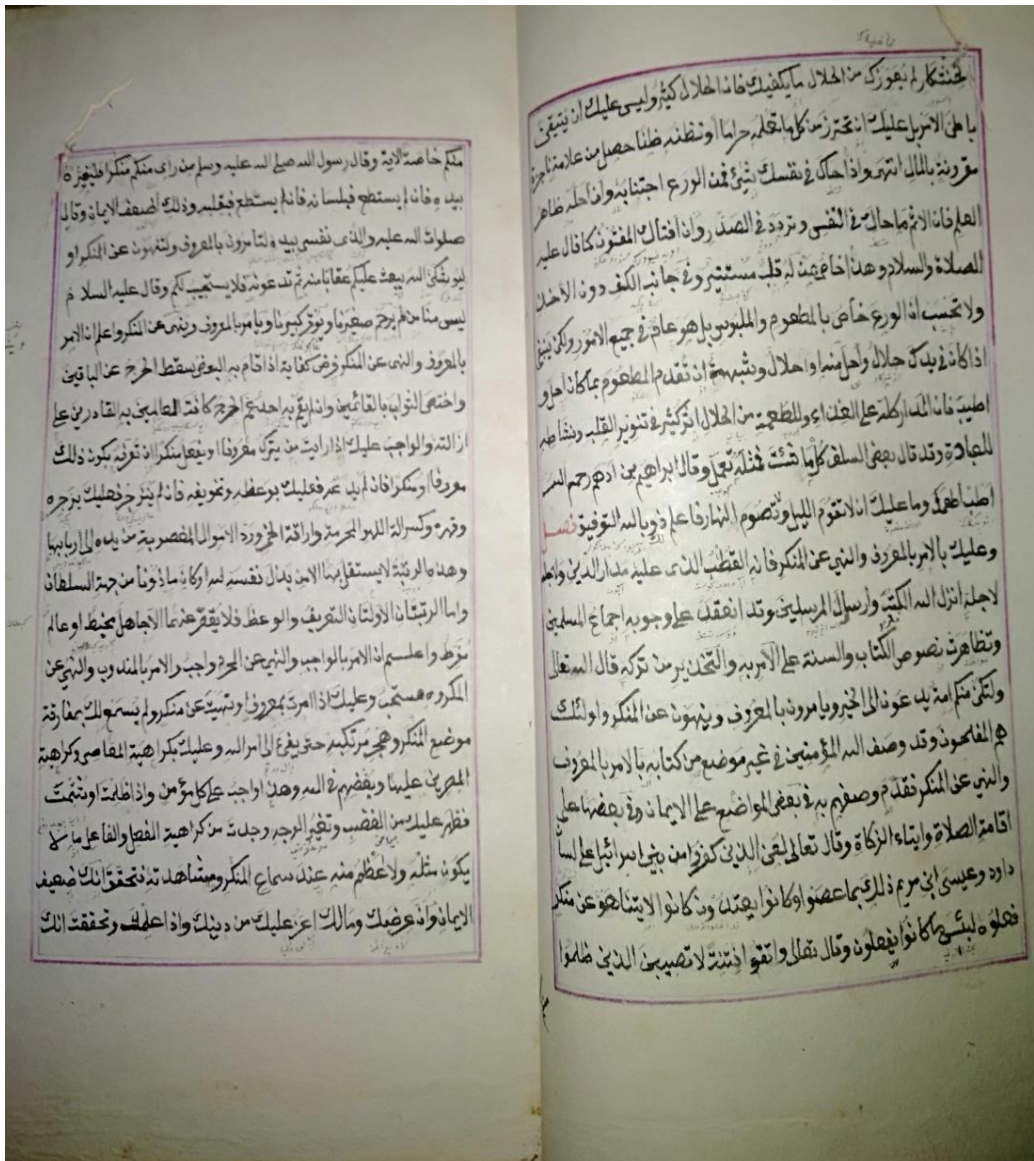 لم يعوزك من الحلال ما يكفيك فان الحلال كثير وليس عليك ان تتيقن
باطن الامر بل عليك ان تحترز من كل ما تعلمه حراما او تظنه ظنا حصل من علامة ناجزة
مقرونة بالمال انتهى واذا حاك في نفسك شيئ فمن الورع اجتنابه وان احله ظاهر
العلم فان الاثم ما حاك في النفس وتردد في الصدر وان افتاك المفتون كما قال عليه
الصلاة والسلام وهذا خاص بمن له قلب مستنير وفي جانب الكف دون الأخذ
ولا تحسب ان الورع خاص بالمطعوم والملبوس بل هو عام في جميع الامور ولكن ينبغي
اذا كان في يدك حلال واحل منه او حلال وشبهة ان تقدم المطعوم بما كان احل و
اطيب فان المدار كله على الغذاء وللطعمة من الحلال اثر كثير في تنوير القلب ونشاط
للعبادة وقد قال بعض السلف كل ما شئت فمثله تعمل وقال ابراهيم بن ادهم رحمه الله
اطب مطعمك وما عليك ان لا تقوم الليل وتصوم النهار فاعلم ذلك وبالله التوفيق فصل
وعليك بالامر بالمعروف والنهي عن المنكر فانه القطب الذى عليه مدار الدين
لاجله انزل الله الكتب وارسل المرسلين وقد انعقد على وجوبه اجماع المسلمين
وتظاهرت نصوص الكتاب والسنة على الأمر به والتحذير من تركه قال الله تعالى
ولتكن منكم امة يدعون الى الخير ويامرون بالمعروف وينهون عن المنكر واولئك
هم المفلحون وقد وصف الله المؤمنين في غير موضع من كتابه بالامر بالمعروف
والنهي عن المنكر فقدم وصفهم به في بعض المواضع على الايمان وفي بعضها على
اقامة الصلاة وايتاء الزكاة وقال تعالى لعن الذين كفروا من بني اسرائيل على لسان
داود وعيسى ابن مريم ذلك بما عصوا وكانوا يعتدون كانوا لا يتناهو عن منكر
فعلوه لبئس ما كانوا يفعلون وقال تعالى واتقوا فتنة لا تصيبن الذين ظلموا
منكم خاصة الاية وقال رسول الله صلى الله عليه وسلم من راى منكم منكرا فليغيره
بيده فان لم يستطع فبلسانه فان لم يستطع فبقلبه وذلك اضعف الايمان وقال
صلوات الله عليه والذى نفسى بيده لتأمرون بالمعروف ولتنهون عن المنكر او
ليوشكن الله يبعث عليكم عقابا منه ثم تدعونه فلا يستجيب لكم وقال عليه السلام
ليس منا من لم يرحم صغيرنا ويوقر كبيرنا ويامر بالمعروف وينهى عن المنكر واعلم ان الامر
بالمعروف والنهى عن المنكر فرض كفاية اذا قام به البعض سقط الحرج عن الباقين
واختص الثواب بالقائمين وان لم يقم به احد عم الحرج كافة العالمين به القادرين على
ازالته والواجب عليك اذا رايت من يترك معروفا او يفعل منكرا ان تعرفه بكون ذلك
معروفا او منكرا فان لم يدع فعليك بوعظه وتخويفه فان لم ينزجر فعليك بزجره
وقهره وكسر الة اللهو المحرمة واراقة الخمر ورد الاموال المغصوبة من يده الى اربابها
وهذه الرتبة لا يستقل بها الا من بذل نفسه لله او كان ماذونا من جهة السلطان
واما الرتبتان الاولتان التعريف والوعظ فلا يقصر عنهما الا جاهل مخبط او عالم
مفرط واعلم ان الامر بالواجب والنهي عن المحرم واجب والامر بالمندوب والنهي عن
المكروه مستحب وعليك اذا امرت بمعروف او نهيت عن منكر ولم يسمع لك بمفارقة
موضع المنكر وهجر مرتكبه حتى يفئ الى امر الله وعليك بكراهية المعاصى وكراهية
المصرين عليها وبغضهم في الله وهذا واجب على كل مؤمن واذا ظلمت او شتمت
فظهر عليك من الغضب وتغير الوجه وجدت من كراهية الفعل والفاعل ما لا
يكون مثله ولا اعظم منه عند سماع المنكر ومشاهدته فتحقق انك ضعيف
الايمان وان عرضك ومالك اعز عليك من دينك واذا علمت وتحققت انك